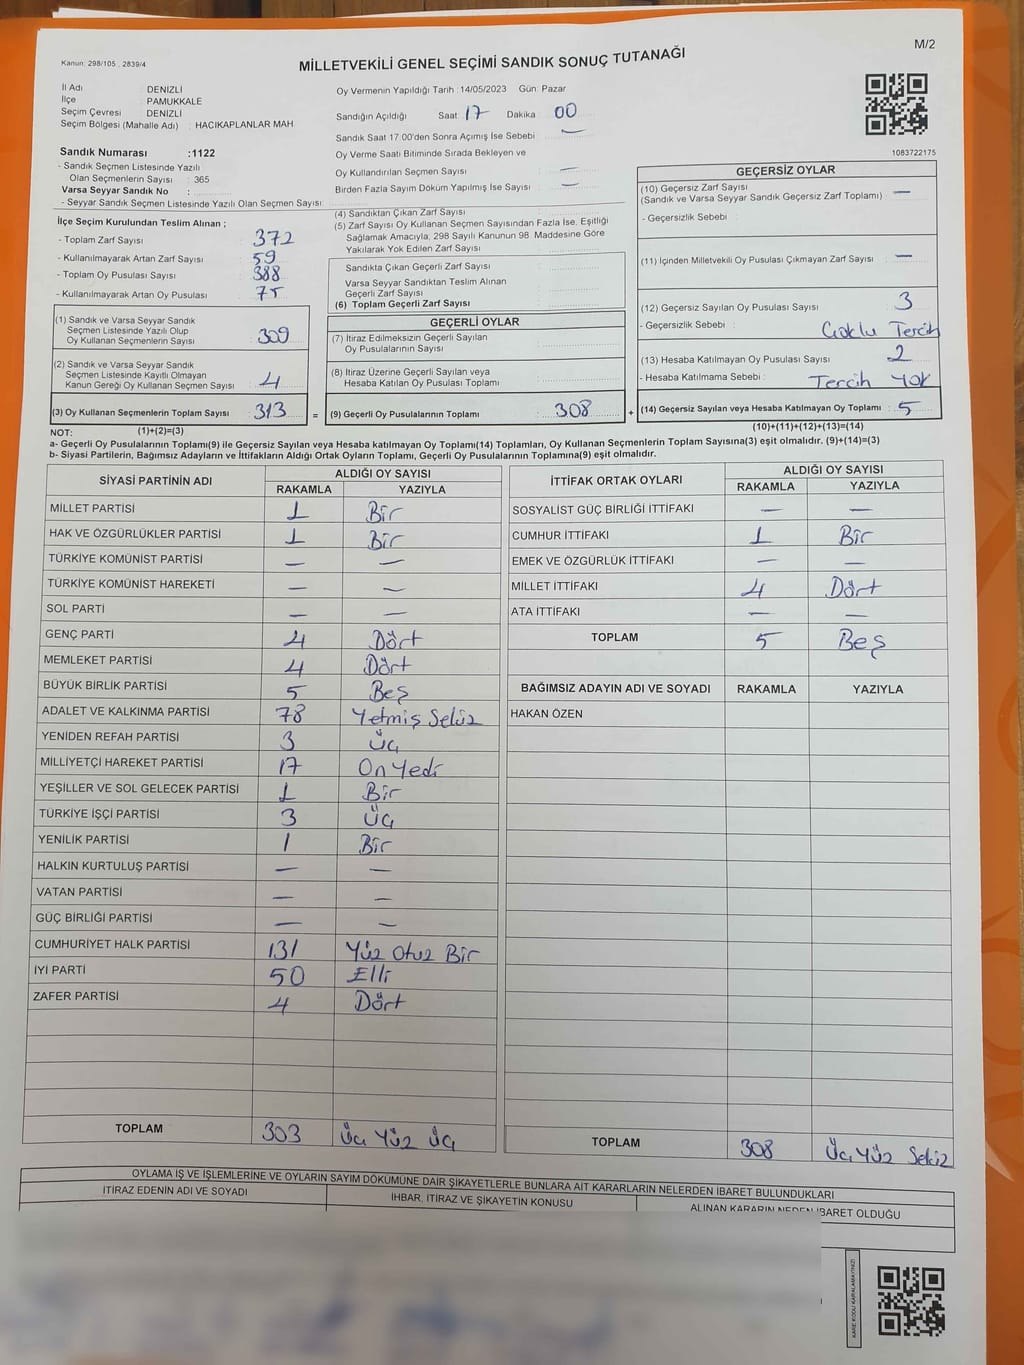 M/2
Kanun: 298/105 , 2839/4
MİLLETVEKİLİ GENEL SEÇİMİ SANDIK SONUÇ TUTANAĞI
İl Adı : DENİZLİ
İlçe : PAMUKKALE
Seçim Çevresi : DENİZLİ
Seçim Bölgesi (Mahalle Adı) : HACIKAPLANLAR MAH.
Sandık Numarası :1122
- Sandık Seçmen Listesinde Yazılı
Olan Seçmenlerin Sayısı : 365
Varsa Seyyar Sandık No :
- Seyyar Sandık Seçmen Listesinde Yazılı Olan Seçmen Sayısı:
Oy Vermenin Yapıldığı Tarih :14/05/2023 Gün: Pazar
Sandığın Açıldığı Saat: 17 Dakika 00
Sandık Saat 17.00'den Sonra Açılmış İse Sebebi : —
Oy Verme Saati Bitiminde Sırada Bekleyen ve
Oy Kullandırılan Seçmen Sayısı : —
Birden Fazla Sayım Döküm Yapılmış İse Sayısı : —
1083722175
İlçe Seçim Kurulundan Teslim Alınan ;
- Toplam Zarf Sayısı : 372
- Kullanılmayarak Artan Zarf Sayısı : 59
- Toplam Oy Pusulası Sayısı : 388
- Kullanılmayarak Artan Oy Pusulası : 75
(1) Sandık ve Varsa Seyyar Sandık
Seçmen Listesinde Yazılı Olup
Oy Kullanan Seçmenlerin Sayısı : 309
(2) Sandık ve Varsa Seyyar Sandık
Seçmen Listesinde Kayıtlı Olmayan
Kanun Gereği Oy Kullanan Seçmen Sayısı : 4
(3) Oy Kullanan Seçmenlerin Toplam Sayısı : 313 =
(1)+(2)=(3)
(4) Sandıktan Çıkan Zarf Sayısı :
(5) Zarf Sayısı Oy Kullanan Seçmen Sayısından Fazla İse, Eşitliği
Sağlamak Amacıyla, 298 Sayılı Kanunun 98. Maddesine Göre
Yakılarak Yok Edilen Zarf Sayısı :
Sandıkta Çıkan Geçerli Zarf Sayısı :
Varsa Seyyar Sandıktan Teslim Alınan
Geçerli Zarf Sayısı :
(6) Toplam Geçerli Zarf Sayısı :
GEÇERLİ OYLAR
(7) İtiraz Edilmeksizin Geçerli Sayılan
Oy Pusulalarının Sayısı :
(8) İtiraz Üzerine Geçerli Sayılan veya
Hesaba Katılan Oy Pusulası Toplamı :
(9) Geçerli Oy Pusulalarının Toplamı : 308 +
GEÇERSİZ OYLAR
(10) Geçersiz Zarf Sayısı : —
(Sandık ve Varsa Seyyar Sandık Geçersiz Zarf Toplamı)
- Geçersizlik Sebebi :
(11) İçinden Milletvekili Oy Pusulası Çıkmayan Zarf Sayısı : —
(12) Geçersiz Sayılan Oy Pusulası Sayısı : 3
- Geçersizlik Sebebi : Çoklu Tercih
(13) Hesaba Katılmayan Oy Pusulası Sayısı : 2
- Hesaba Katılmama Sebebi : Tercih Yok
(14) Geçersiz Sayılan veya Hesaba Katılmayan Oy Toplamı : 5
(10)+(11)+(12)+(13)=(14)
NOT:
a- Geçerli Oy Pusulalarının Toplamı(9) ile Geçersiz Sayılan veya Hesaba katılmayan Oy Toplamı(14) Toplamları, Oy Kullanan Seçmenlerin Toplam Sayısına(3) eşit olmalıdır. (9)+(14)=(3)
b- Siyasi Partilerin, Bağımsız Adayların ve İttifakların Aldığı Ortak Oyların Toplamı, Geçerli Oy Pusulalarının Toplamına(9) eşit olmalıdır.
SİYASİ PARTİNİN ADI ALDIĞI OY SAYISI
RAKAMLA YAZIYLA
MİLLET PARTİSİ 1 Bir
HAK VE ÖZGÜRLÜKLER PARTİSİ 1 Bir
TÜRKİYE KOMÜNİST PARTİSİ — —
TÜRKİYE KOMÜNİST HAREKETİ — —
SOL PARTİ — —
GENÇ PARTİ 4 Dört
MEMLEKET PARTİSİ 4 Dört
BÜYÜK BİRLİK PARTİSİ 5 Beş
ADALET VE KALKINMA PARTİSİ 78 Yetmiş Sekiz
YENİDEN REFAH PARTİSİ 3 Üç
MİLLİYETÇİ HAREKET PARTİSİ 17 On Yedi
YEŞİLLER VE SOL GELECEK PARTİSİ 1 Bir
TÜRKİYE İŞÇİ PARTİSİ 3 Üç
YENİLİK PARTİSİ 1 Bir
HALKIN KURTULUŞ PARTİSİ — —
VATAN PARTİSİ — —
GÜÇ BİRLİĞİ PARTİSİ — —
CUMHURİYET HALK PARTİSİ 131 Yüz Otuz Bir
İYİ PARTİ 50 Elli
ZAFER PARTİSİ 4 Dört
TOPLAM 303 Üç Yüz Üç
İTTİFAK ORTAK OYLARI ALDIĞI OY SAYISI
RAKAMLA YAZIYLA
SOSYALİST GÜÇ BİRLİĞİ İTTİFAKI — —
CUMHUR İTTİFAKI 1 Bir
EMEK VE ÖZGÜRLÜK İTTİFAKI — —
MİLLET İTTİFAKI 4 Dört
ATA İTTİFAKI — —
TOPLAM 5 Beş
BAĞIMSIZ ADAYIN ADI VE SOYADI RAKAMLA YAZIYLA
HAKAN ÖZEN
TOPLAM 308 Üç Yüz Sekiz
OYLAMA İŞ VE İŞLEMLERİNE VE OYLARIN SAYIM DÖKÜMÜNE DAİR ŞİKAYETLERLE BUNLARA AİT KARARLARIN NELERDEN İBARET BULUNDUKLARI
İTİRAZ EDENİN ADI VE SOYADI İHBAR, İTİRAZ VE ŞİKAYETİN KONUSU ALINAN KARARIN NEDEN İBARET OLDUĞU
KARE KODU KARALAMAYINIZ!